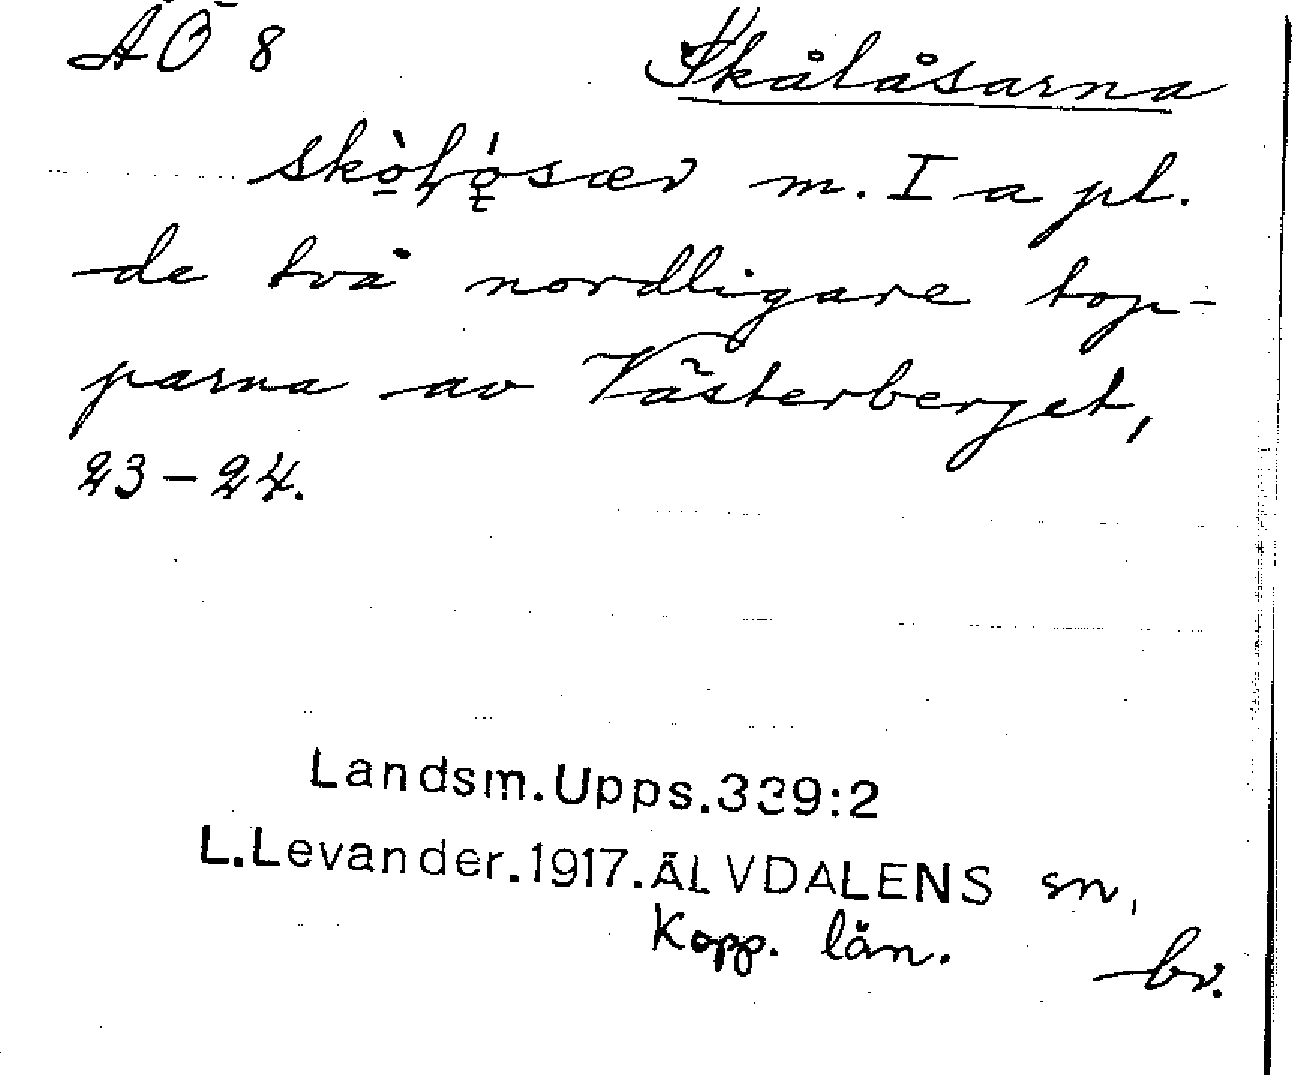 ÄÖ 8 Skålåsarna
skò̱ɫǫ́sær m. I a pl.
de två nordligare top-
parna av Västerberget,
23-24.
Landsm.Upps.339:2
L.Levander.1917.ÄLVDALENS sn,
Kopp. län.
br.